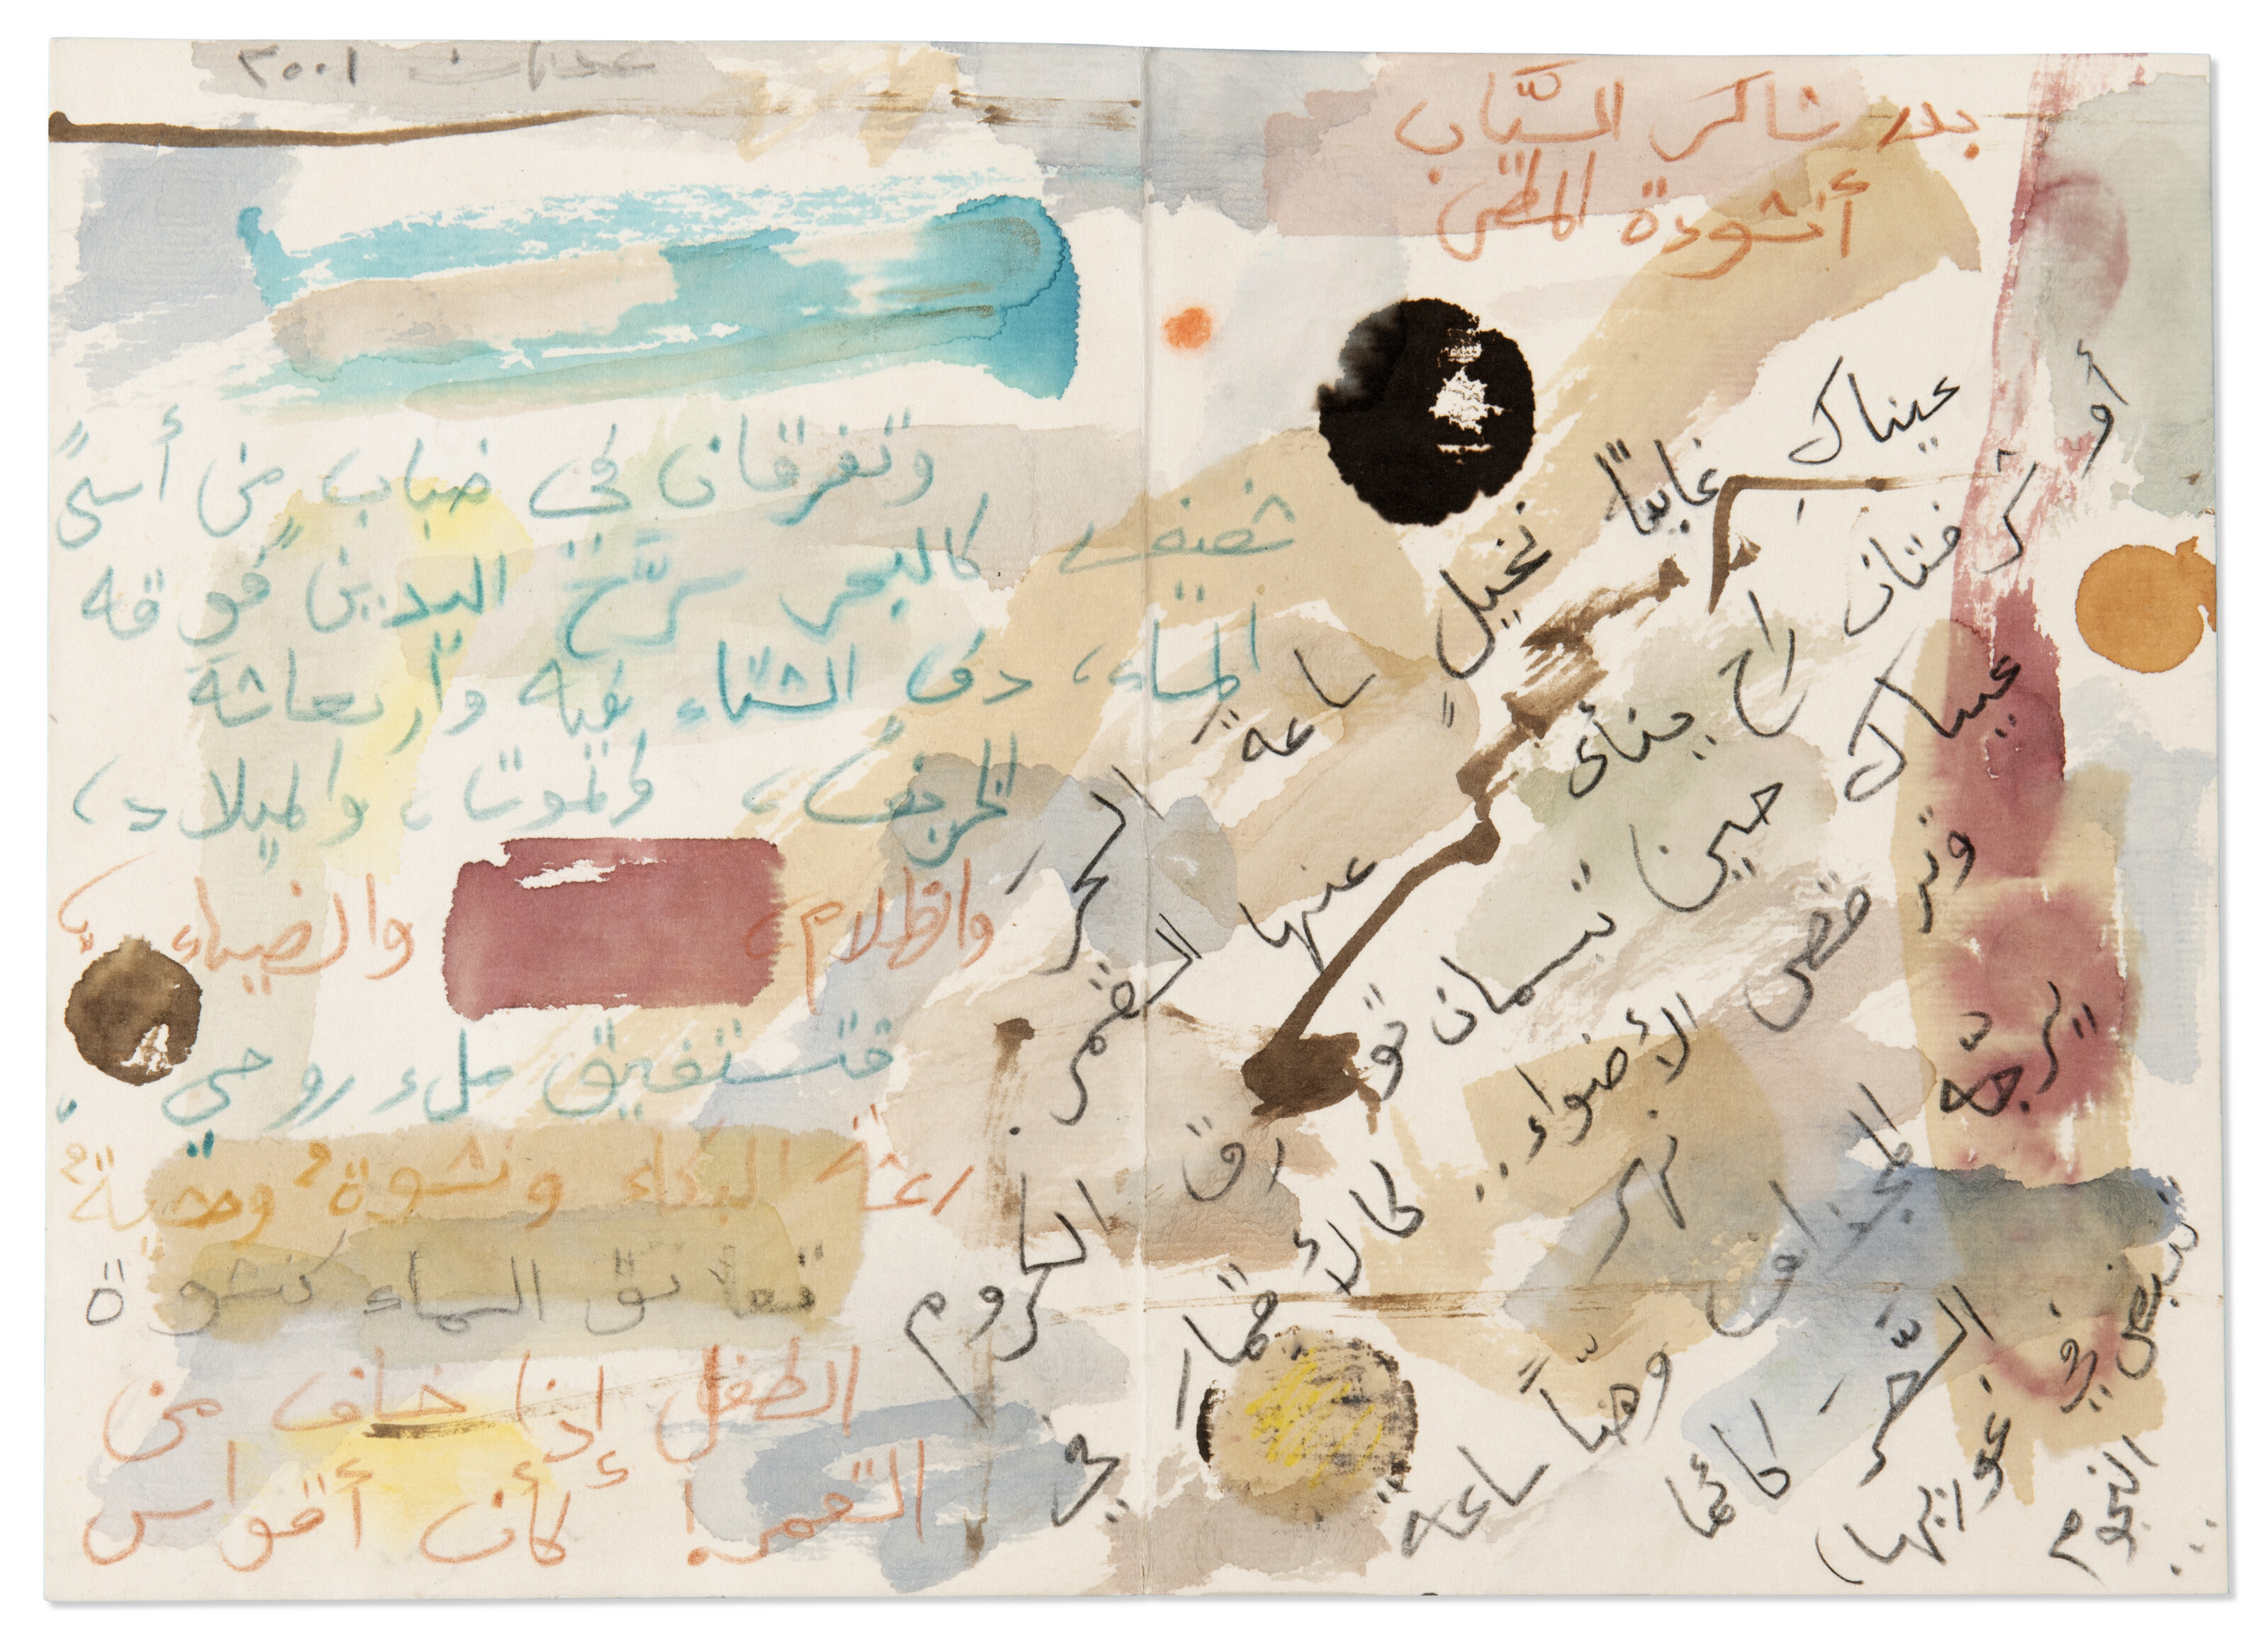 بدر شاكر السيّاب
أنشودة المطر
عيناك غابتا نخيلٍ ساعة السحر
أو شرفتان راح ينأى عنها القمر.
عيناك حين تبسمان تورق الكروم
وترقص الأضواء.. كالأقمار في نهر
يرجّه المجذاف وهناً ساعة السّحر
كأنما تنبض في غوريها النجوم..
عدنان ٢٠٠١
وتغرقان في ضباب من أسىً
شفيف كالبحر سرّح اليدين فوقه
المساء، دفء الشتاء فيه وارتعاشة
الخريف، والموت، والميلاد،
والظلام، والضياء؛
فتستفيق ملء روحي،
رعشة البكاء ونشوةٌ وحشيةٌ
تعانق السماء كنشوة
الطفل إذا خاف من
القمر! كأن أقواس